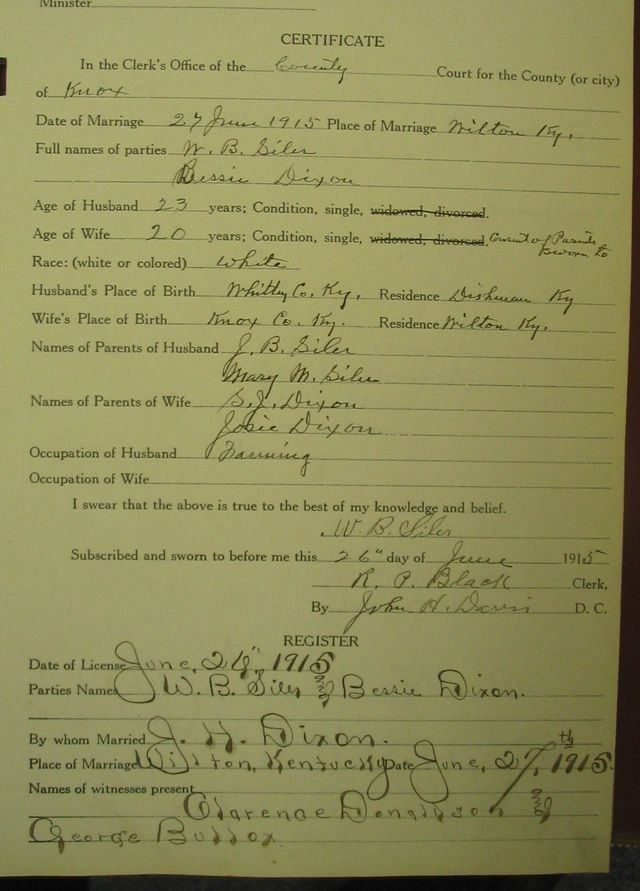 Minister
CERTIFICATE
In the Clerk's Office of the County Court for the County (or city)
of Knox
Date of Marriage 27 June 1915 Place of Marriage Wilton Ky.
Full names of parties W. B. Siler
Bessie Dixon
Age of Husband 23 years; Condition, single, widowed, divorced.
Age of Wife 20 years; Condition, single, widowed, divorced. Consent of Parents
sworn to
Race: (white or colored) white
Husband's Place of Birth Whitley Co. Ky. Residence Dishman Ky
Wife's Place of Birth Knox Co. Ky. Residence Wilton Ky.
Names of Parents of Husband J. B. Siler
Mary M. Siler
Names of Parents of Wife S. J. Dixon
Josie Dixon
Occupation of Husband Farming
Occupation of Wife
I swear that the above is true to the best of my knowledge and belief.
W. B. Siler
Subscribed and sworn to before me this 26" day of June 1915
R. P. Black Clerk,
By John H. Davis D. C.
REGISTER
Date of License June, 1915
Parties Names W. B. Siler and Bessie Dixon.
By whom Married J. H. Dixon.
Place of Marriage Wilton, Kentucky Date June, 27th, 1915.
Names of witnesses present
Clarence Donaldson and
George Bullox